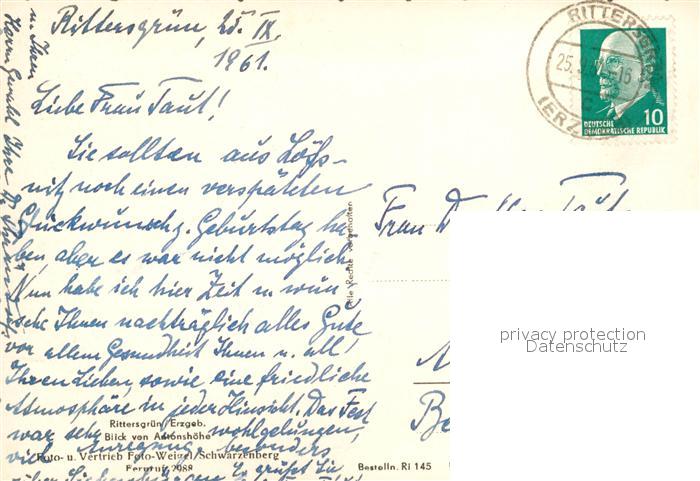 Rittersgrün, 25. IX.
1961.
Liebe Frau Taut!
Sie sollten aus Löß-
nitz noch einen verspäteten
Glückwunsch z. Geburtstag ha
ben, aber es war nicht möglich.
Nun habe ich hier Zeit u. wün
sche Ihnen nachträglich alles Gute
vor allem Gesundheit Ihnen u. all
Ihren Lieben, sowie eine friedliche
Atmosphäre in jeder Hinsicht. Das Fest
war sehr wohlgelungen,
viel Anregung, besonders
grüßt Sie
u. Ihren
Herrn Gemahl Ihre
Rittersgrün/Erzgeb.
Blick von Antonshöhe
Foto- u. Vertrieb Foto-Weigel/Schwarzenberg
Fernruf 2088
Bestelln. RI 145
Alle Rechte vorbehalten
Frau Taut
RITTERSGRÜN
25.9.61-16
(ERZ
10
DEUTSCHE
DEMOKRATISCHE REPUBLIK
privacy protection
Datenschutz